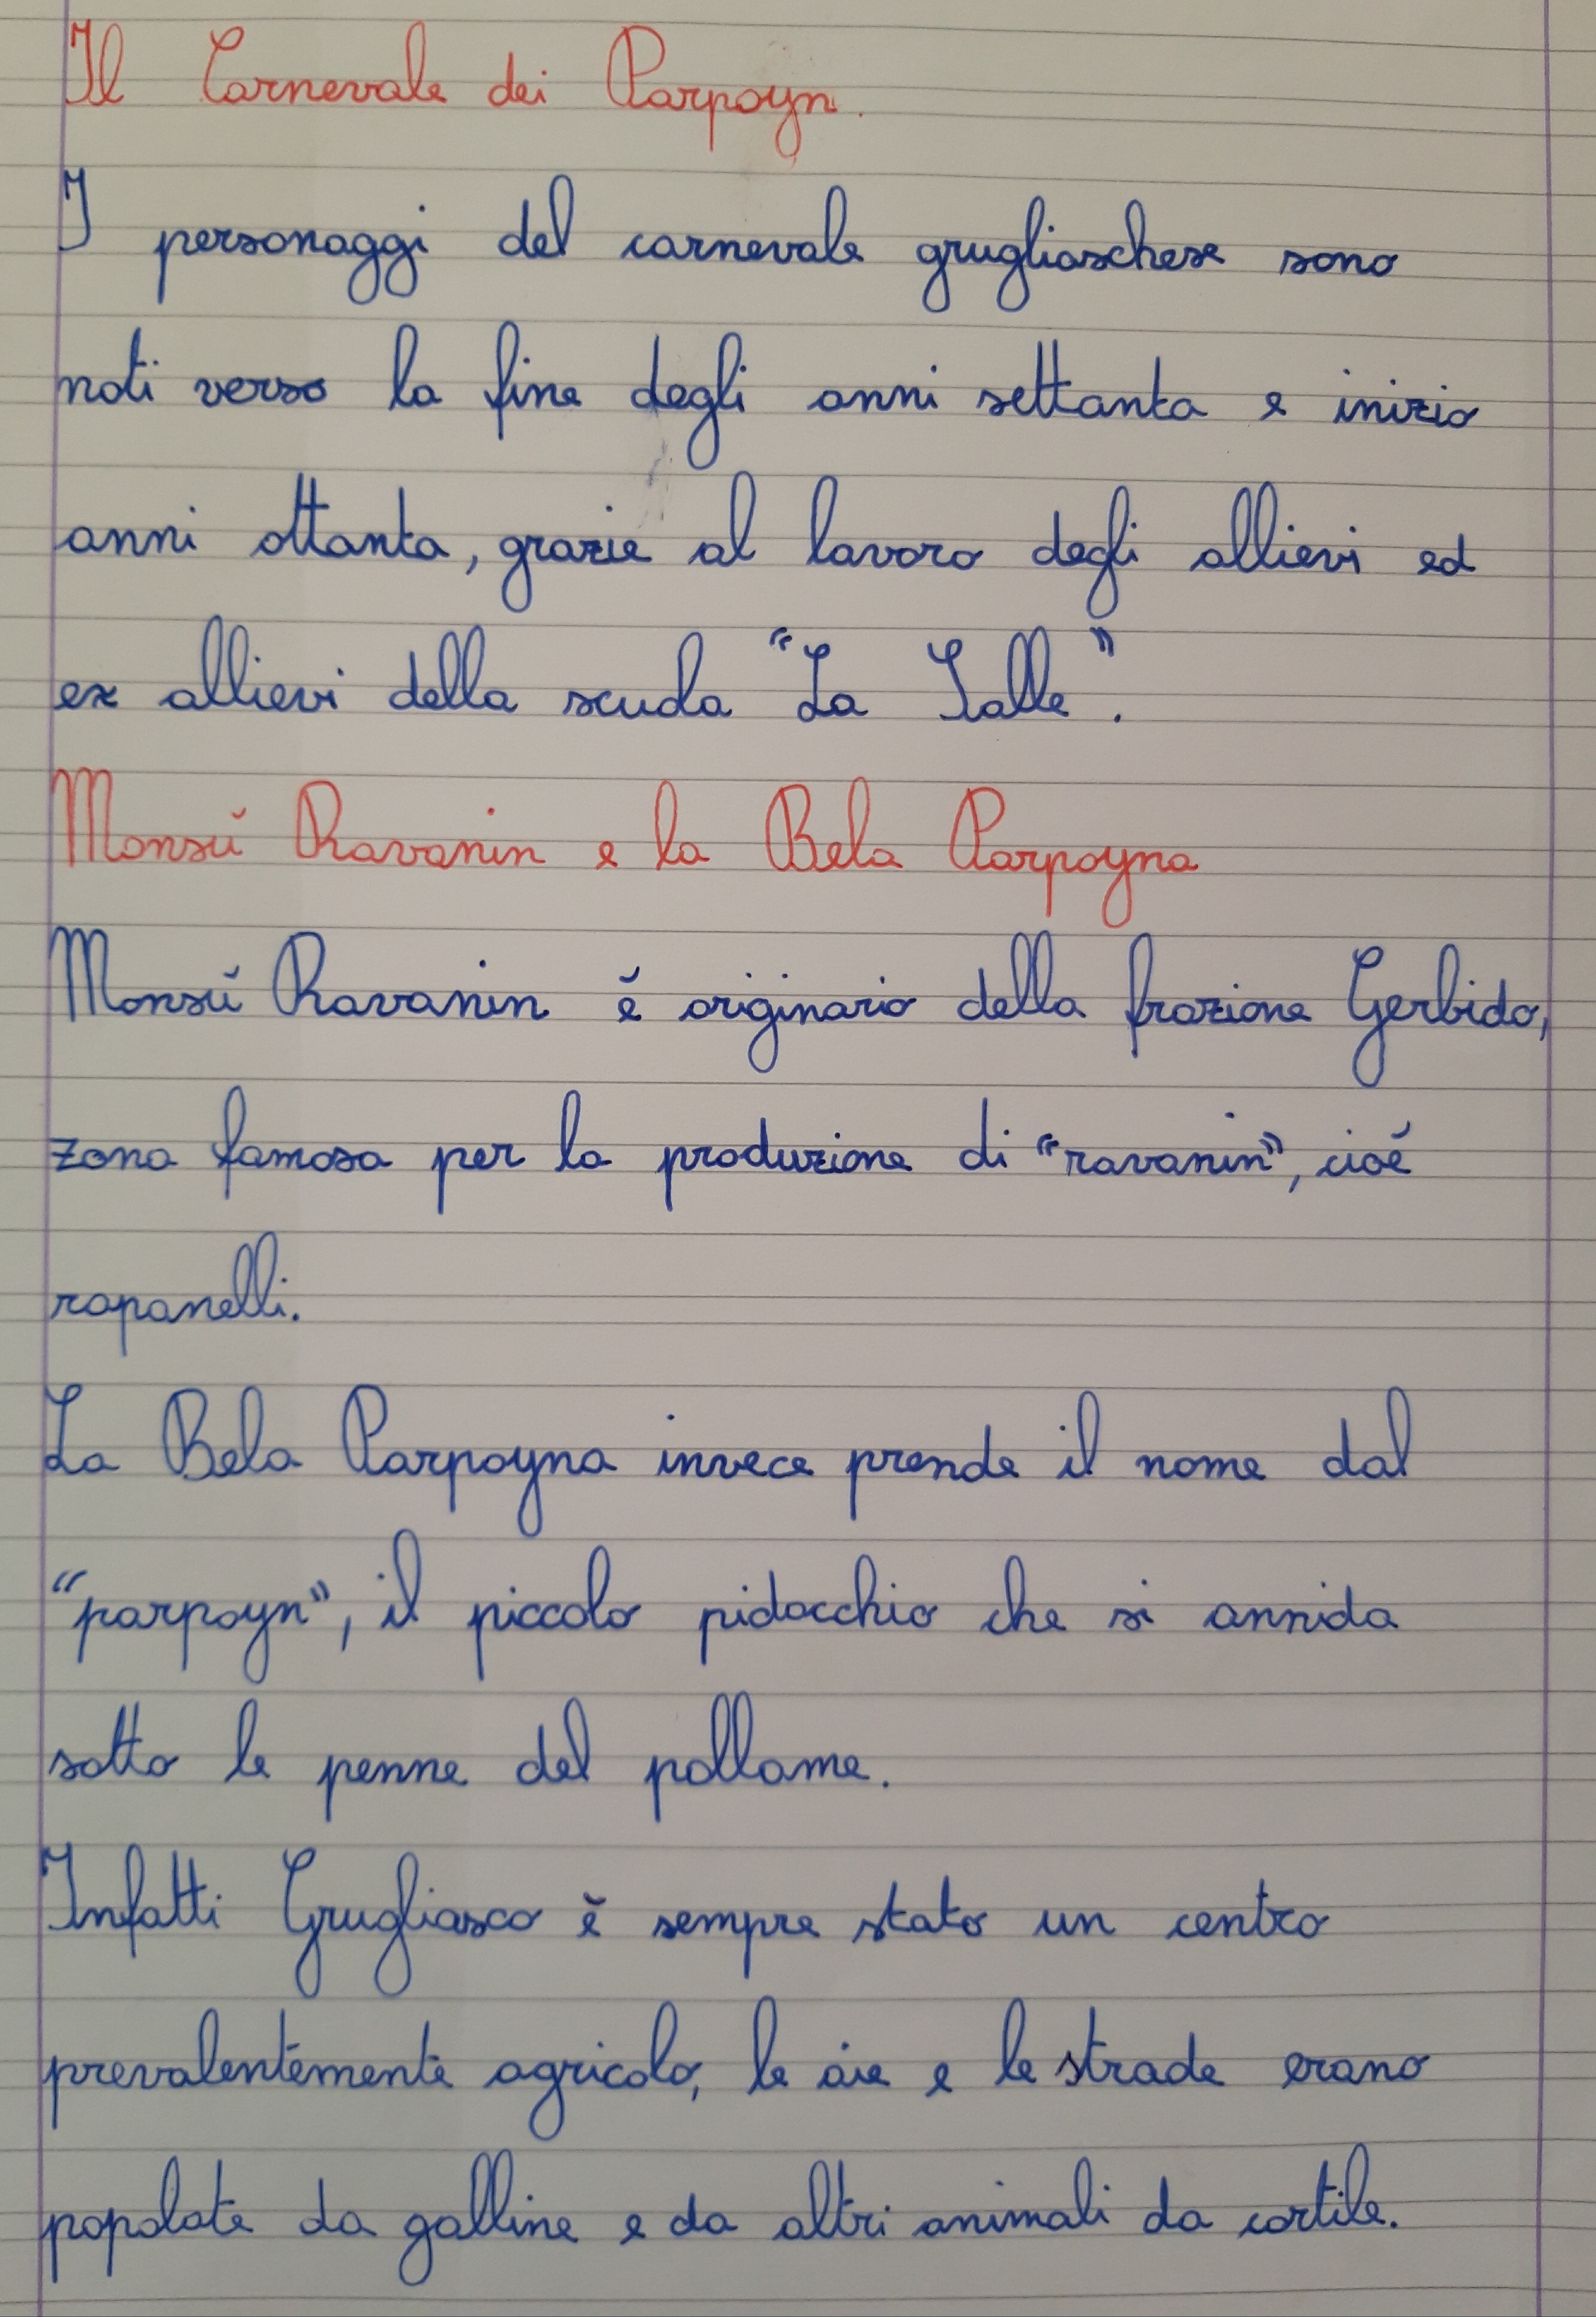 Il Carnevale dei Parpoyn.
I personaggi del carnevale grugliaschese sono
noti verso la fine degli anni settanta e inizio
anni ottanta, grazie al lavoro degli allievi ed
ex allievi della scuola "La Salle".
Monsù Ravanin e la Bela Parpoyna
Monsù Ravanin è originario della frazione Gerbido,
zona famosa per la produzione di "ravanin", cioè
rapanelli.
La Bela Parpoyna invece prende il nome dal
"parpoyn", il piccolo pidocchio che si annida
sotto le penne del pollame.
Infatti Grugliasco è sempre stato un centro
prevalentemente agricolo, le aie e le strade erano
popolate da galline e da altri animali da cortile.